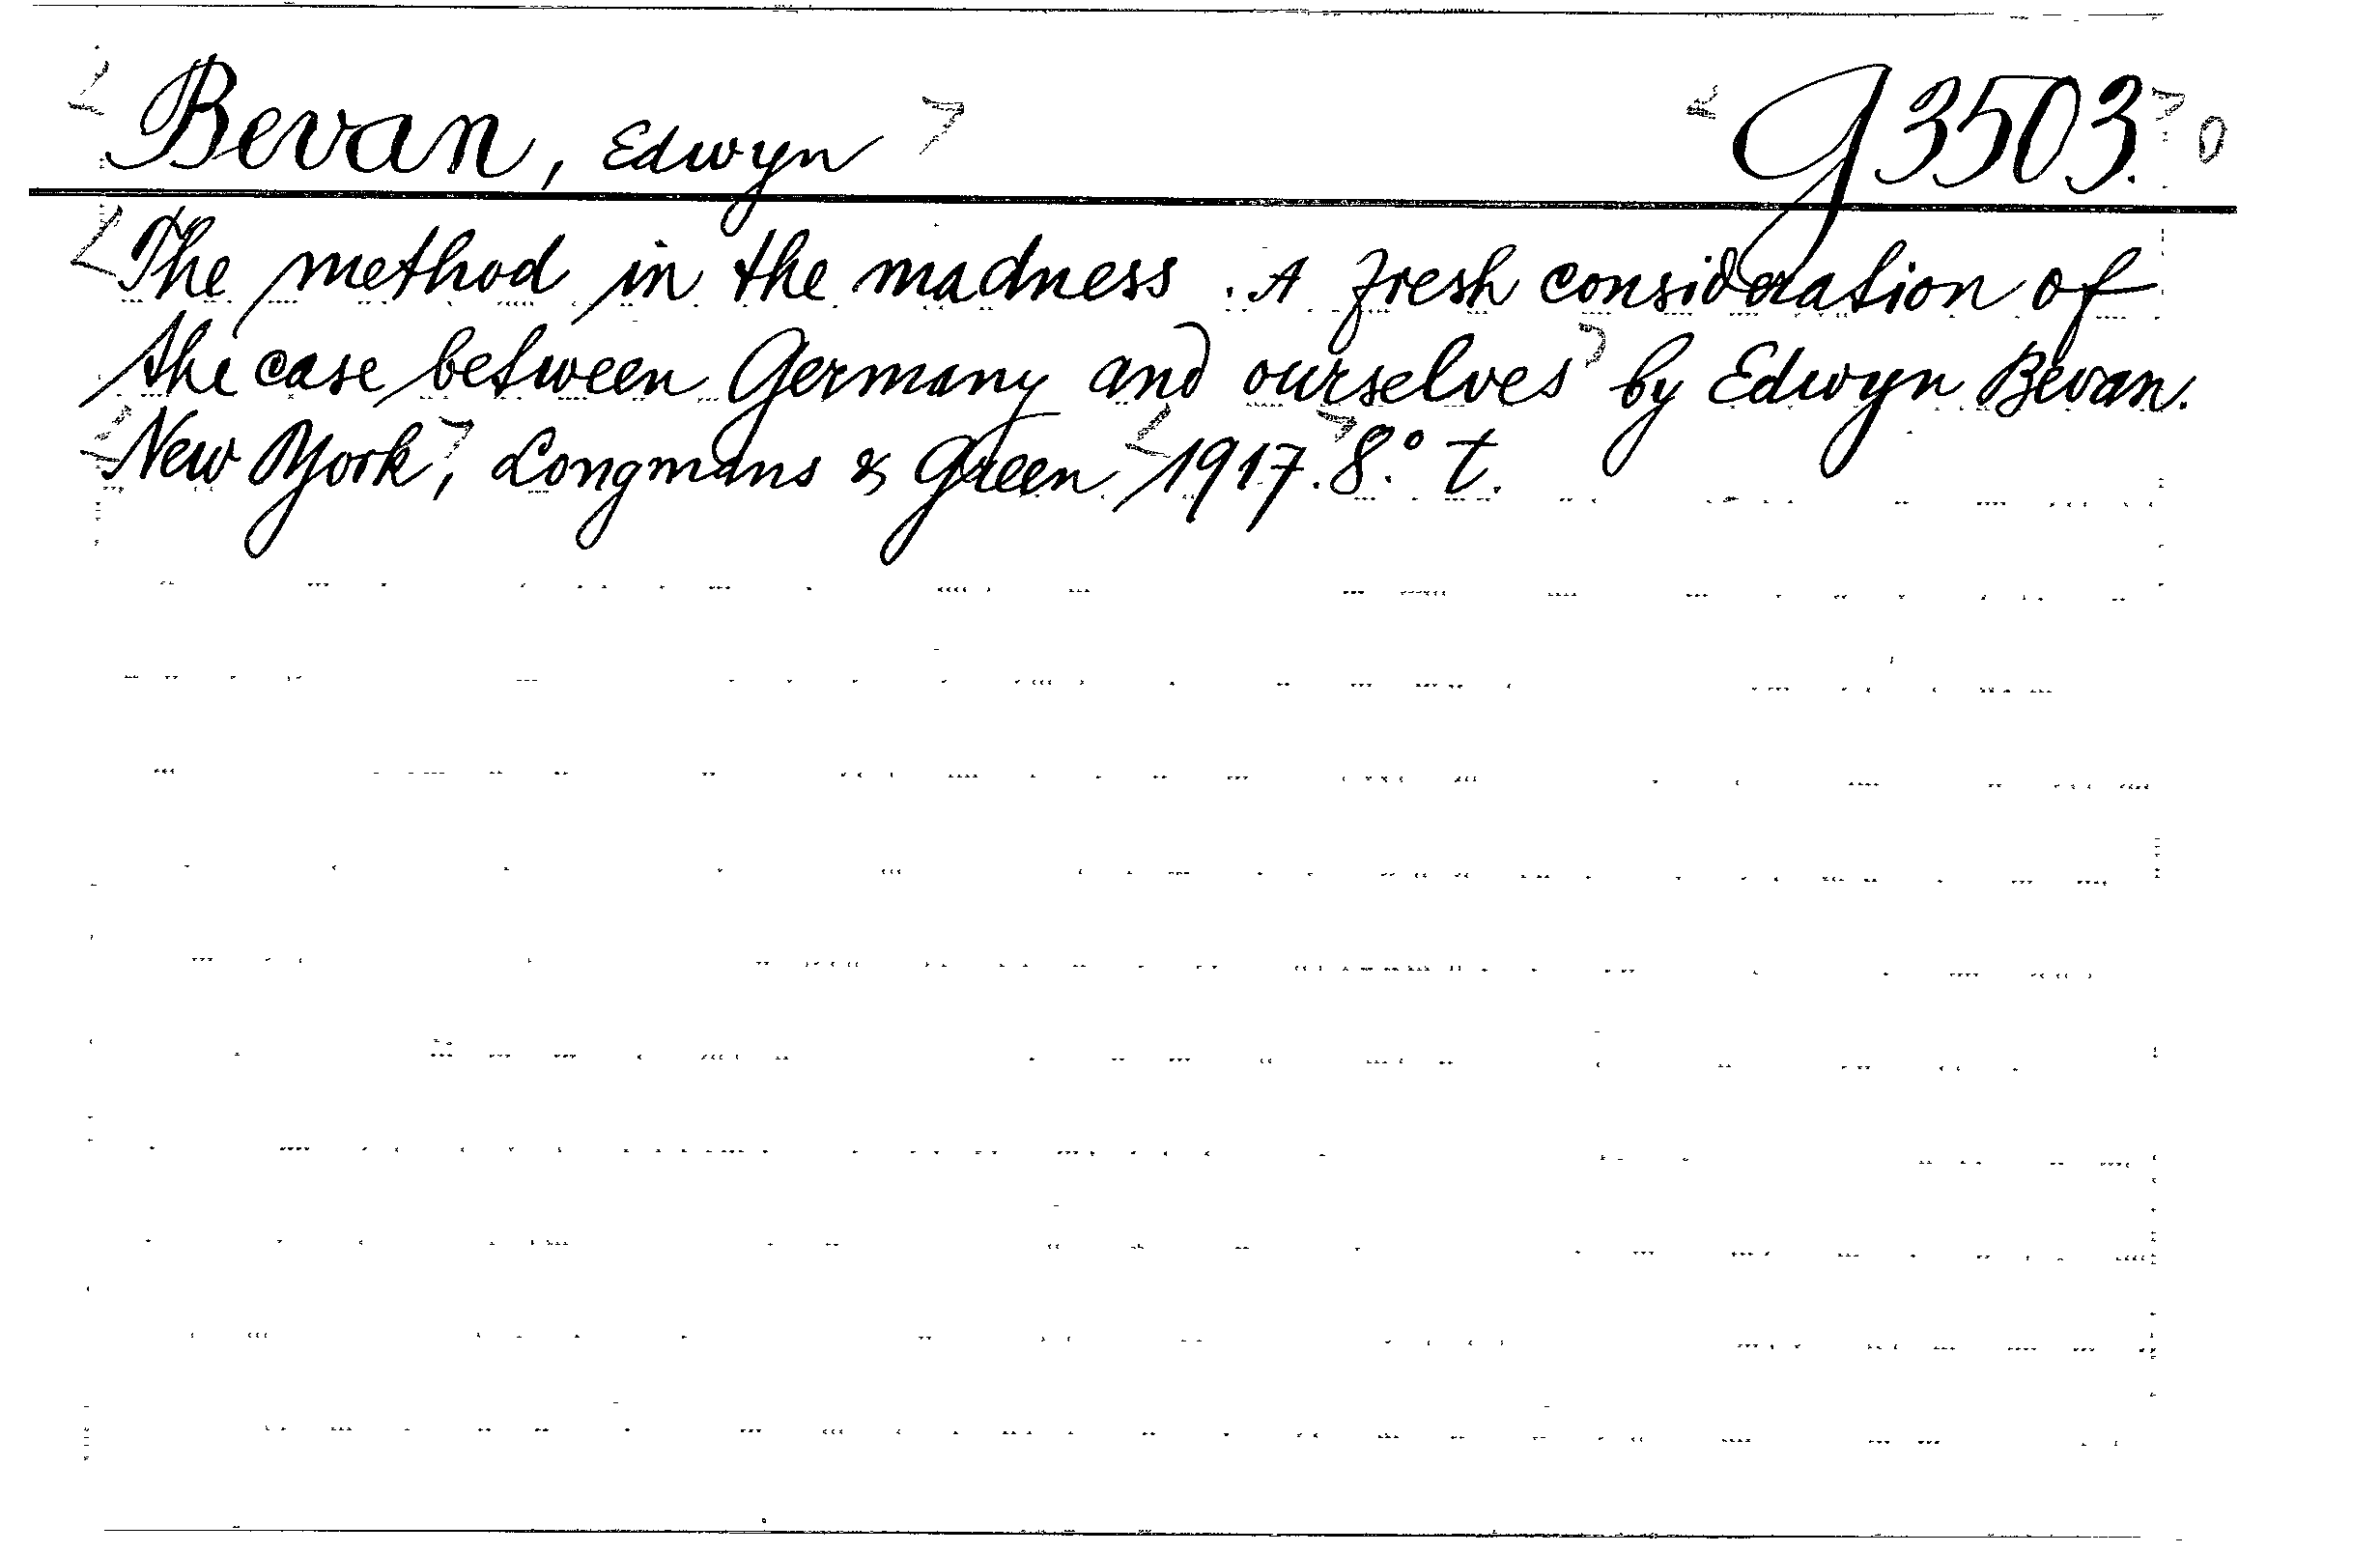 Bevan, Edwyn G 3503. 0
The method in the madness. A fresh consideration of
the case between Germany and ourselves by Edwyn Bevan.
New York, Longmans & Green 1917. 8.° t.